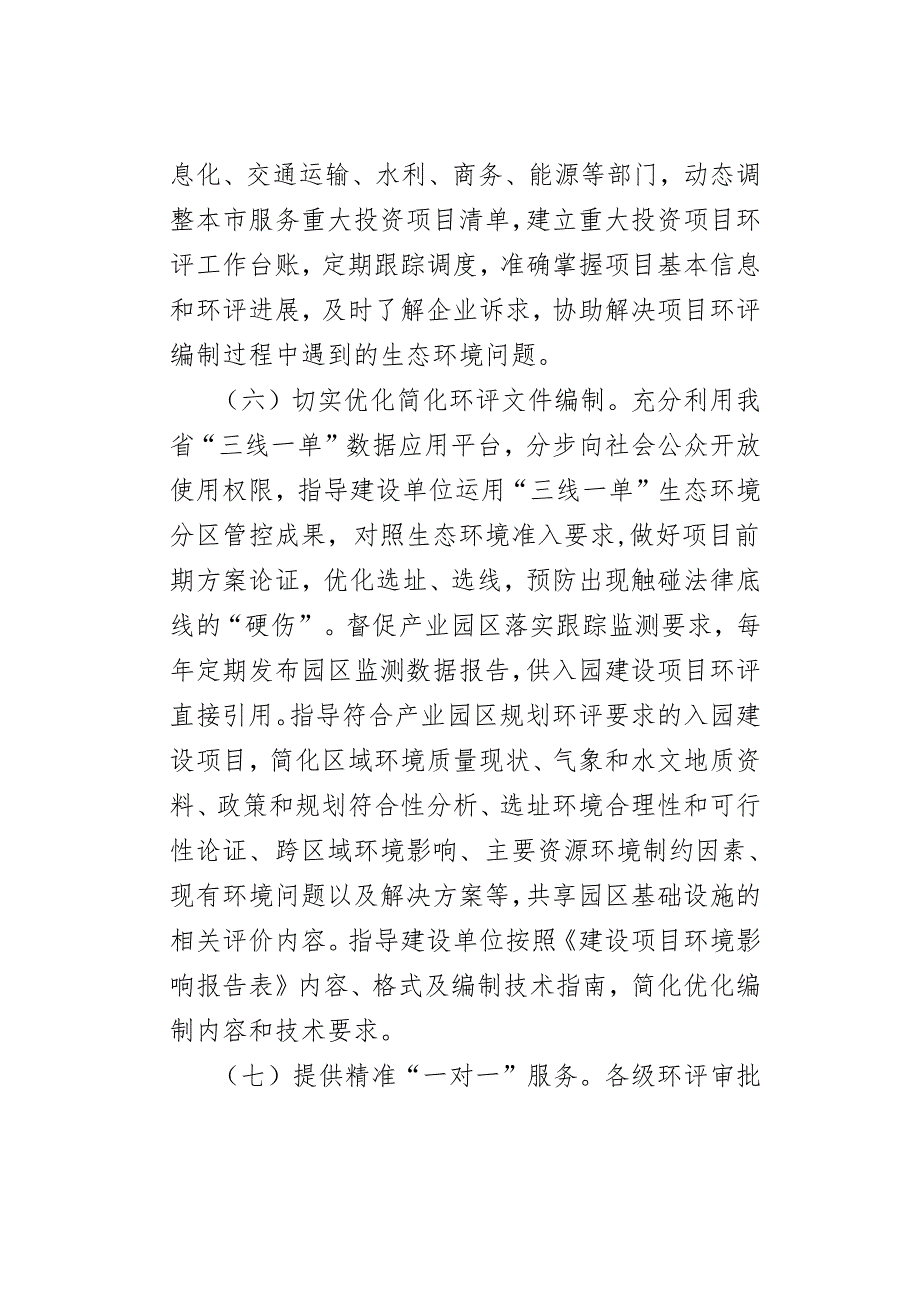 息化、交通运输、水利、商务、能源等部门，动态调
整本市服务重大投资项目清单，建立重大投资项目环
评工作台账，定期跟踪调度，准确掌握项目基本信息
和环评进展，及时了解企业诉求，协助解决项目环评
编制过程中遇到的生态环境问题。
（六）切实优化简化环评文件编制。充分利用我
省“三线一单”数据应用平台，分步向社会公众开放
使用权限，指导建设单位运用“三线一单”生态环境
分区管控成果，对照生态环境准入要求,做好项目前
期方案论证，优化选址、选线，预防出现触碰法律底
线的“硬伤”。督促产业园区落实跟踪监测要求，每
年定期发布园区监测数据报告，供入园建设项目环评
直接引用。指导符合产业园区规划环评要求的入园建
设项目，简化区域环境质量现状、气象和水文地质资
料、政策和规划符合性分析、选址环境合理性和可行
性论证、跨区域环境影响、主要资源环境制约因素、
现有环境问题以及解决方案等，共享园区基础设施的
相关评价内容。指导建设单位按照《建设项目环境影
响报告表》内容、格式及编制技术指南，简化优化编
制内容和技术要求。
（七）提供精准“一对一”服务。各级环评审批